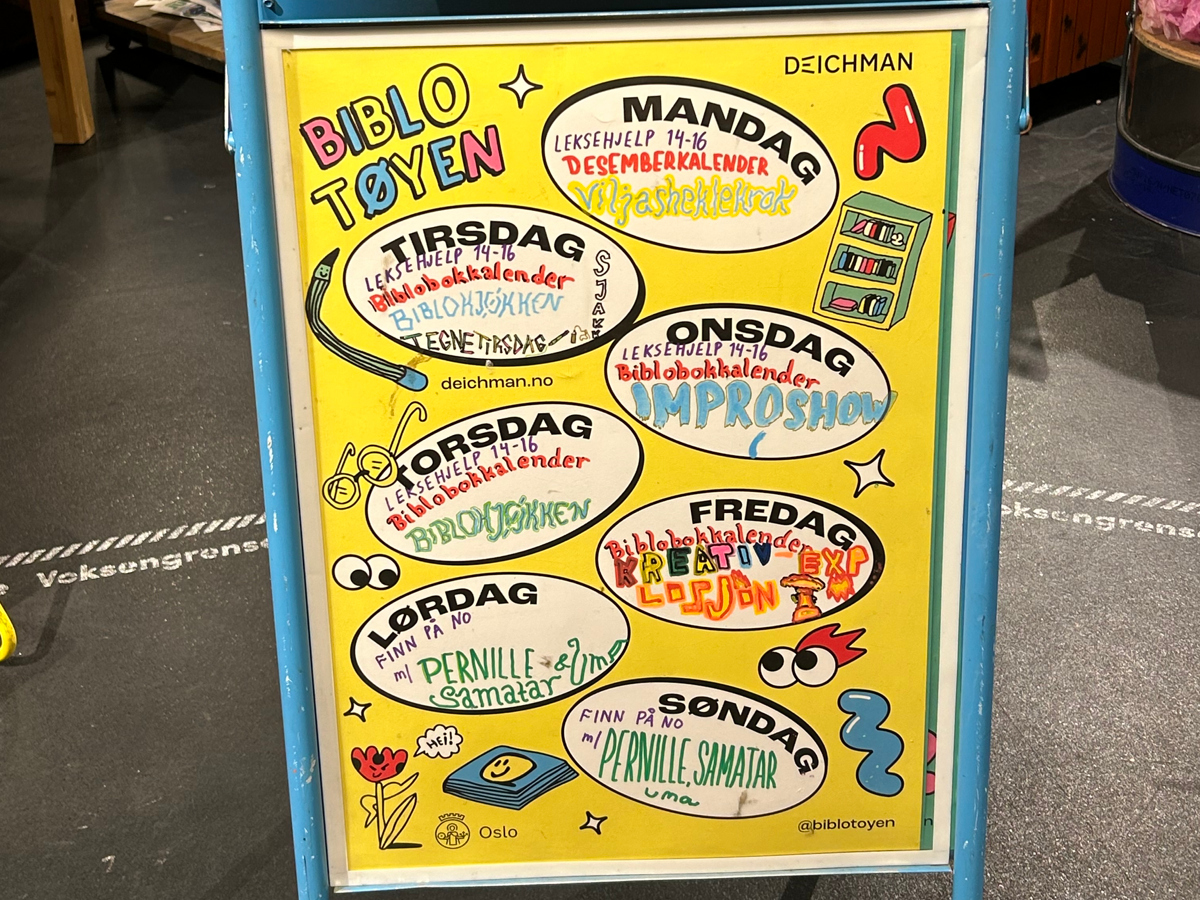 DEICHMAN
BIBLO
TØYEN
MANDAG
LEKSEHJELP 14-16
DESEMBERKALENDER
Viljasheklekrok
TIRSDAG
LEKSEHJELP 14-16
Biblobokkalender
BIBLOKJØKKEN
TEGNETIRSDAG
SJAKK
deichman.no
ONSDAG
LEKSEHJELP 14-16
Biblobokkalender
IMPROSHOW
TORSDAG
LEKSEHJELP 14-16
Biblobokkalender
BIBLOKJØKKEN
FREDAG
Biblobokkalender
KREATIV EXP
LOSJON
LØRDAG
FINN PÅ NO
m/ PERNILLE & Uma
Samatar
SØNDAG
FINN PÅ NO
m/ PERNILLE, SAMATAR
uma
HEI!
Oslo
@biblotoyen
Voksengrense
oksengrens